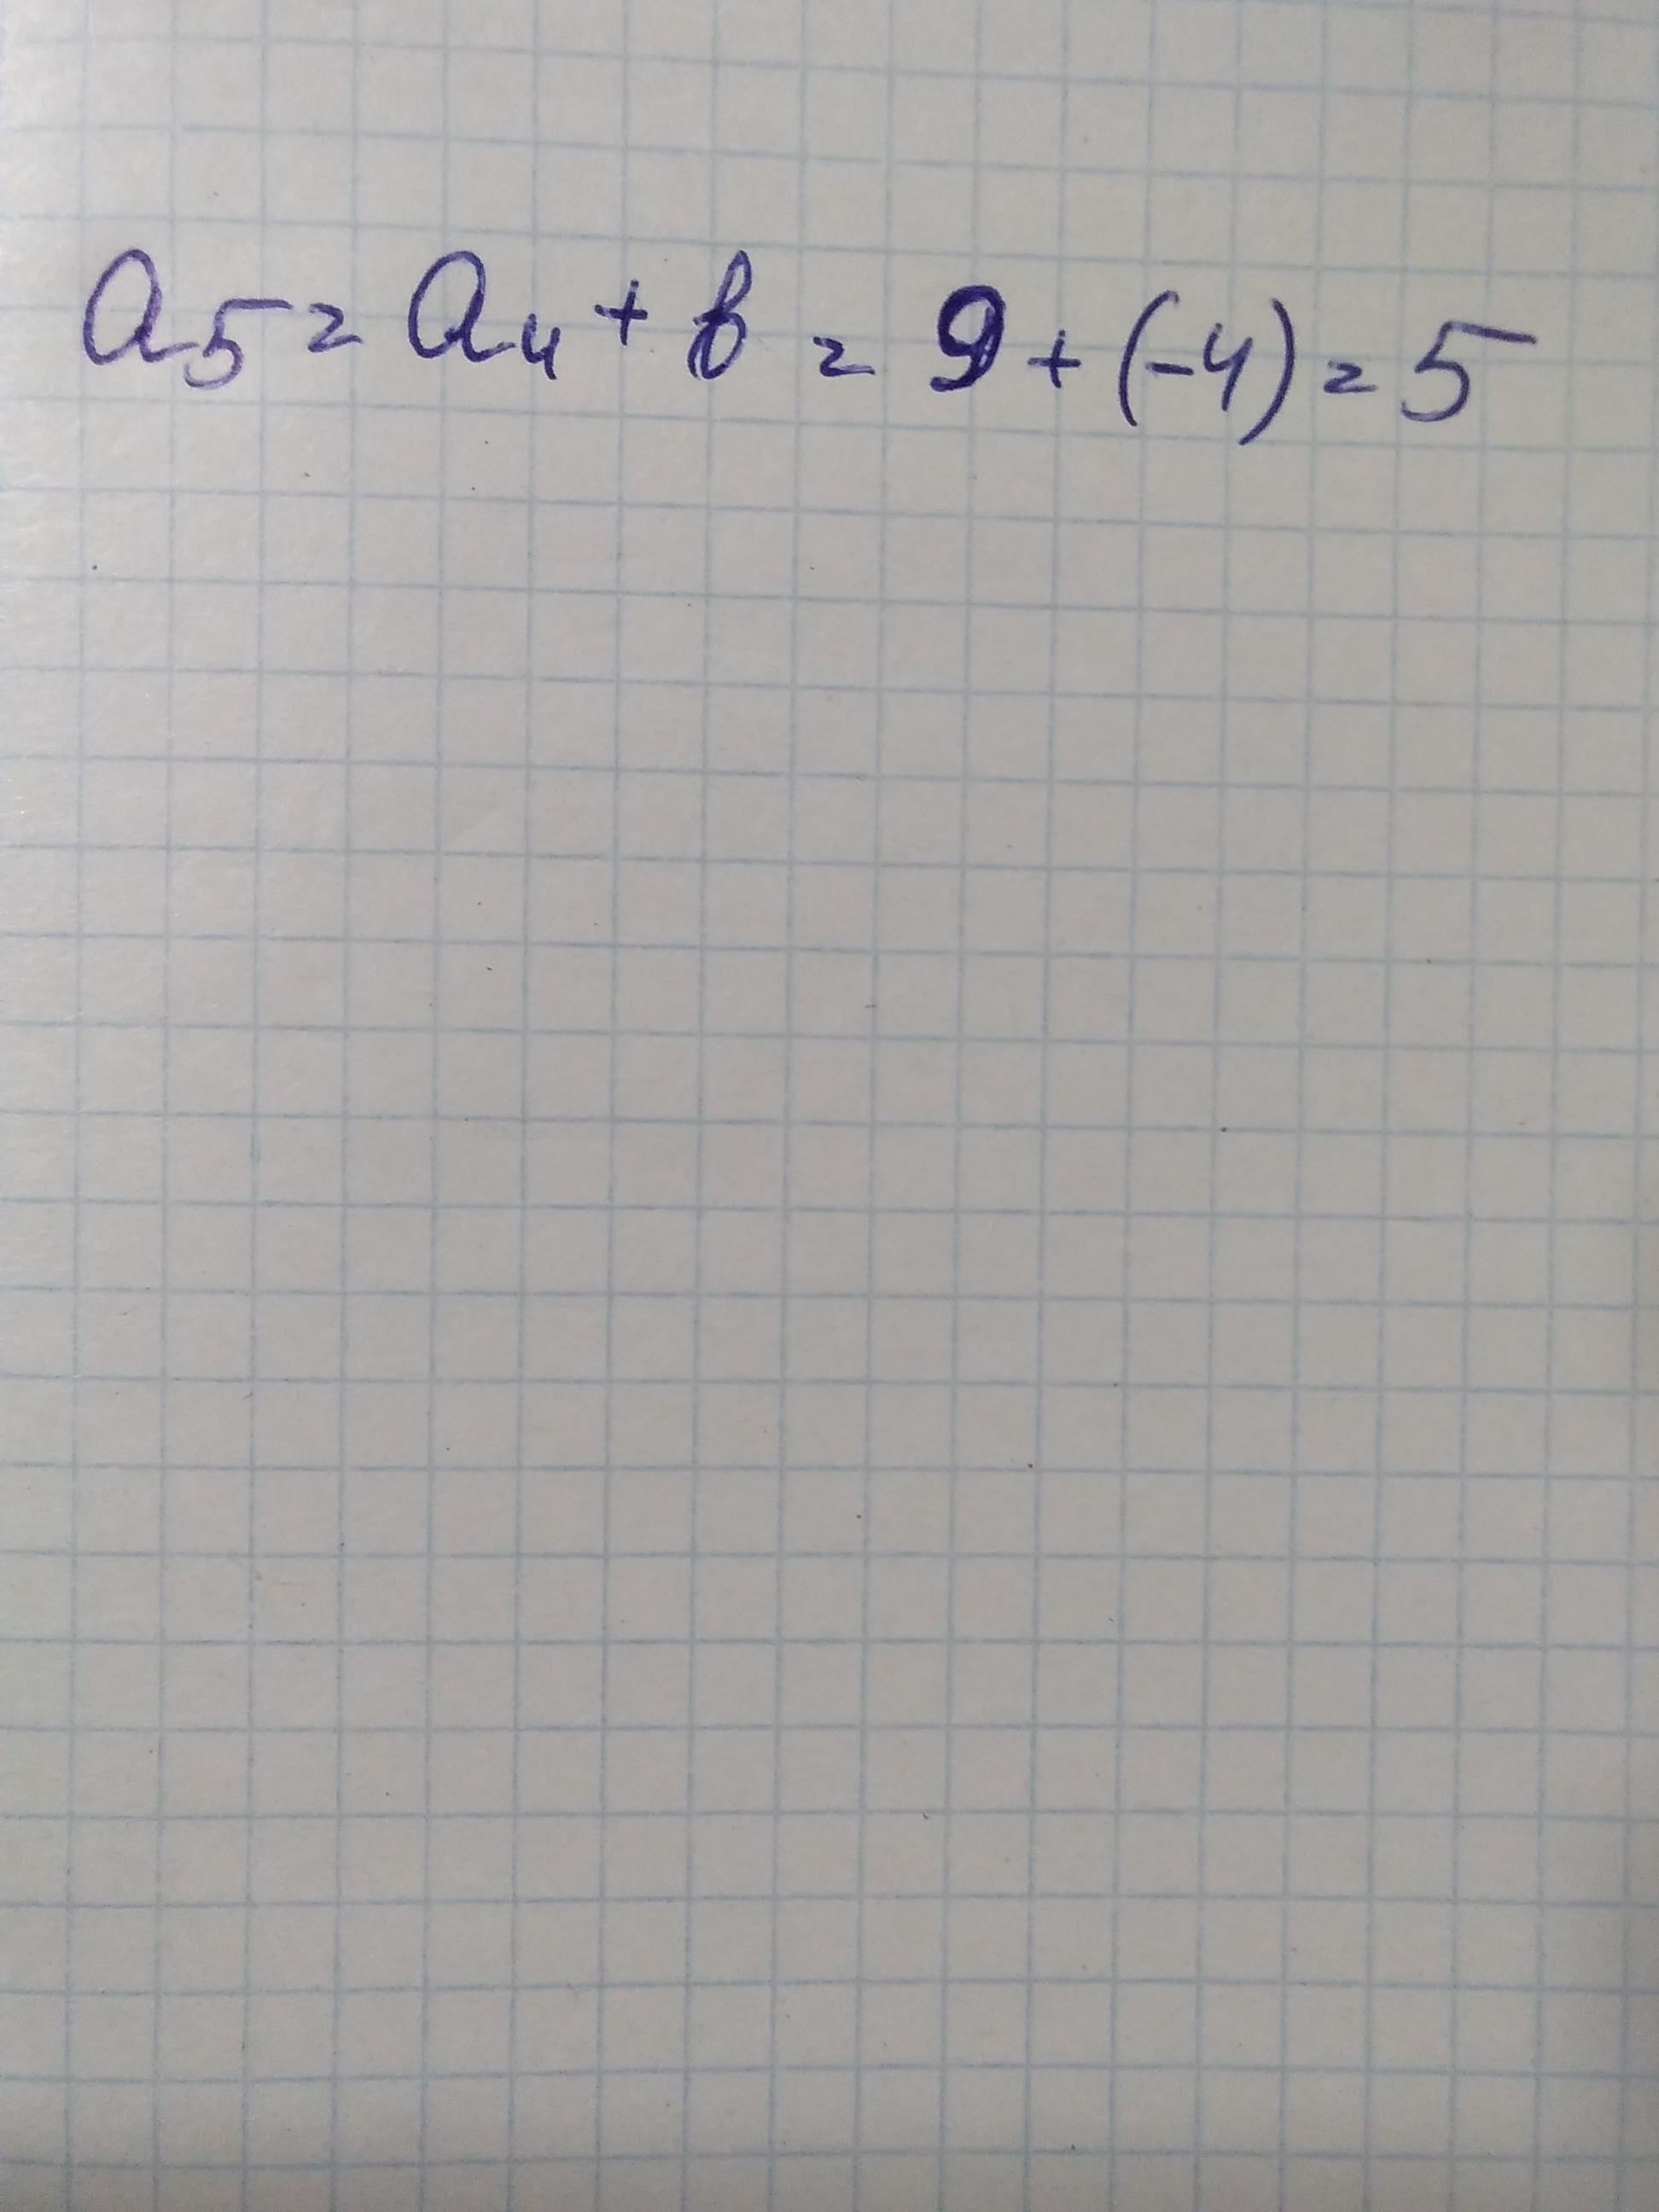 a₅ = a₄ + b = 9 + (-4) = 5